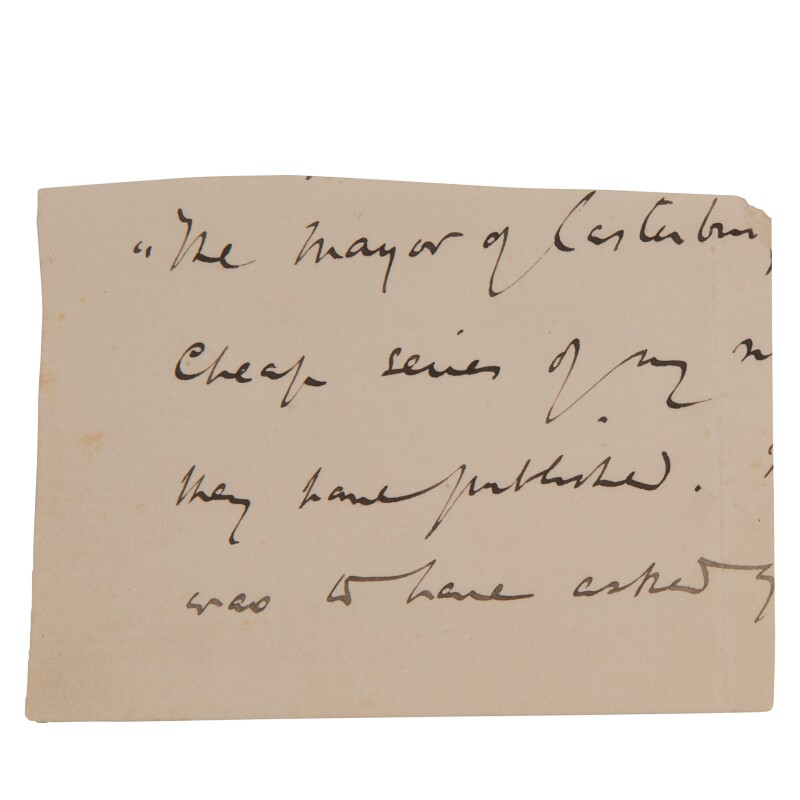 "The Mayor of Casterbri
Cheap series of my
they have published.
was to have asked